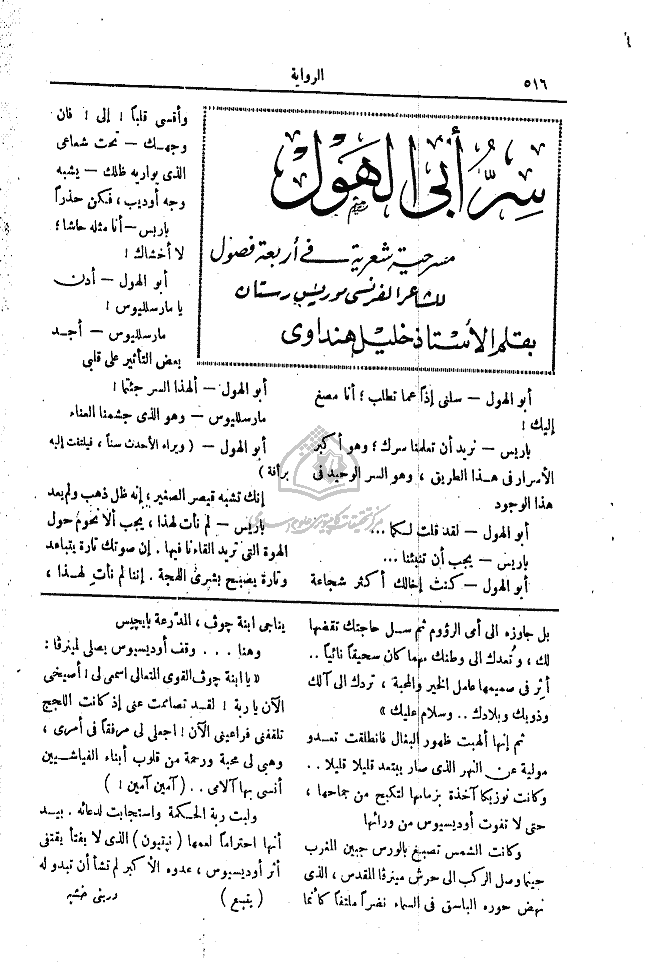 ٥١٦
الرواية
سِرُّ أبي الهَوْل
مسرحية شعرية في أربعة فصول
للشاعر الفرنسي موريس رستان
بقلم الأستاذ خليل هنداوى
أبو الهول — سلنى إذاً عما تطلب ؛ أنا مصغ
إليك !
باريس — نريد أن تعلمنا سرك ؛ وهو أكبر
الأسرار فى هذا الطريق ، وهو السر الوحيد فى
هذا الوجود
أبو الهول — لقد قلت لكما ...
باريس — يجب أن تنبئنا ...
أبو الهول — كنت إخالك أكثر شجاعة
وأقسى قلباً ! إلى ! فان
وجهك — تحت شعاعى
الذى يواريه ظلك — يشبه
وجه أوديب ، فكن حذراً
باريس — أنا مثله حاشا ؛
لا أخشاك !
أبو الهول — أدن
يا مارسلليوس !
مارسلليوس — أجد
بعض التأثير على قلبى
أبو الهول — ألهذا السر جئتما !
مارسلليوس — وهو الذى جشمنا العناء
أبو الهول — ( ويراه الأحدث سناً ، فيلتفت إليه
برأفة )
إنك تشبه قيصر الصغير ، إنه ظل ذهب ولم يعد
باريس — لم نأت لهذا ، يجب ألا نحوم حول
الهوة التى تريد القاءنا فيها . إن صوتك تارة يتباعد
وتارة يصبح بشرىّ اللهجة . إننا لم نأت لهذا ،
بل جاوزه الى أمى الرؤوم ثم سل حاجتك تقضها
لك ، وتُعدك الى وطنك مهما كان سحيقاً نائياً ..
أثِر فى صميمها عامل الخير والمحبة ، تردك الى آلك
وذويك وبلادك .. وسلام عليك »
ثم إنها ألهبت ظهور البغال فانطلقت تعدو
مولية عن النهر الذى صار يبتعد قليلا قليلا ..
وكانت نوزيكا آخذة بزمامها لتكبح من جماحها ،
حتى لا تفوت أوديسيوس من ورائها
وكانت الشمس تصبغ بالورس جبين المغرب
حينما وصل الركب الى حرش مينرڤا المقدس ، الذى
نهض حوره الباسق فى السماء نضراً ملتفاً كأنما
يناجى ابنة چوڤ ، المدّرعة بايچيس
وهنا ... وقف أوديسيوس يصلى لمينرڤا :
« يا ابنة چوڤ القوى المتعالى اسمى لى ! أصيخى
الآن يا ربة ! لقد تصاممت عنى إذ كانت اللجج
تلقفنى فراعينى الآن ! اجعلى لى مرفقاً فى أمرى ،
وهبى لى محبة ورحمة من قلوب أبناء الفياشيين
أنسى بها آلامى .. ( آمين آمين ! )
ولبت ربة الحكمة واستجابت لدعائه . بيد
أنها احتراماً لعمها ( نپتيون ) الذى لا يفتأ يقتفى
أثر أوديسيوس ، عدوه الأكبر لم تشأ أن تبدو له
( يتبع )
دريني خشبه